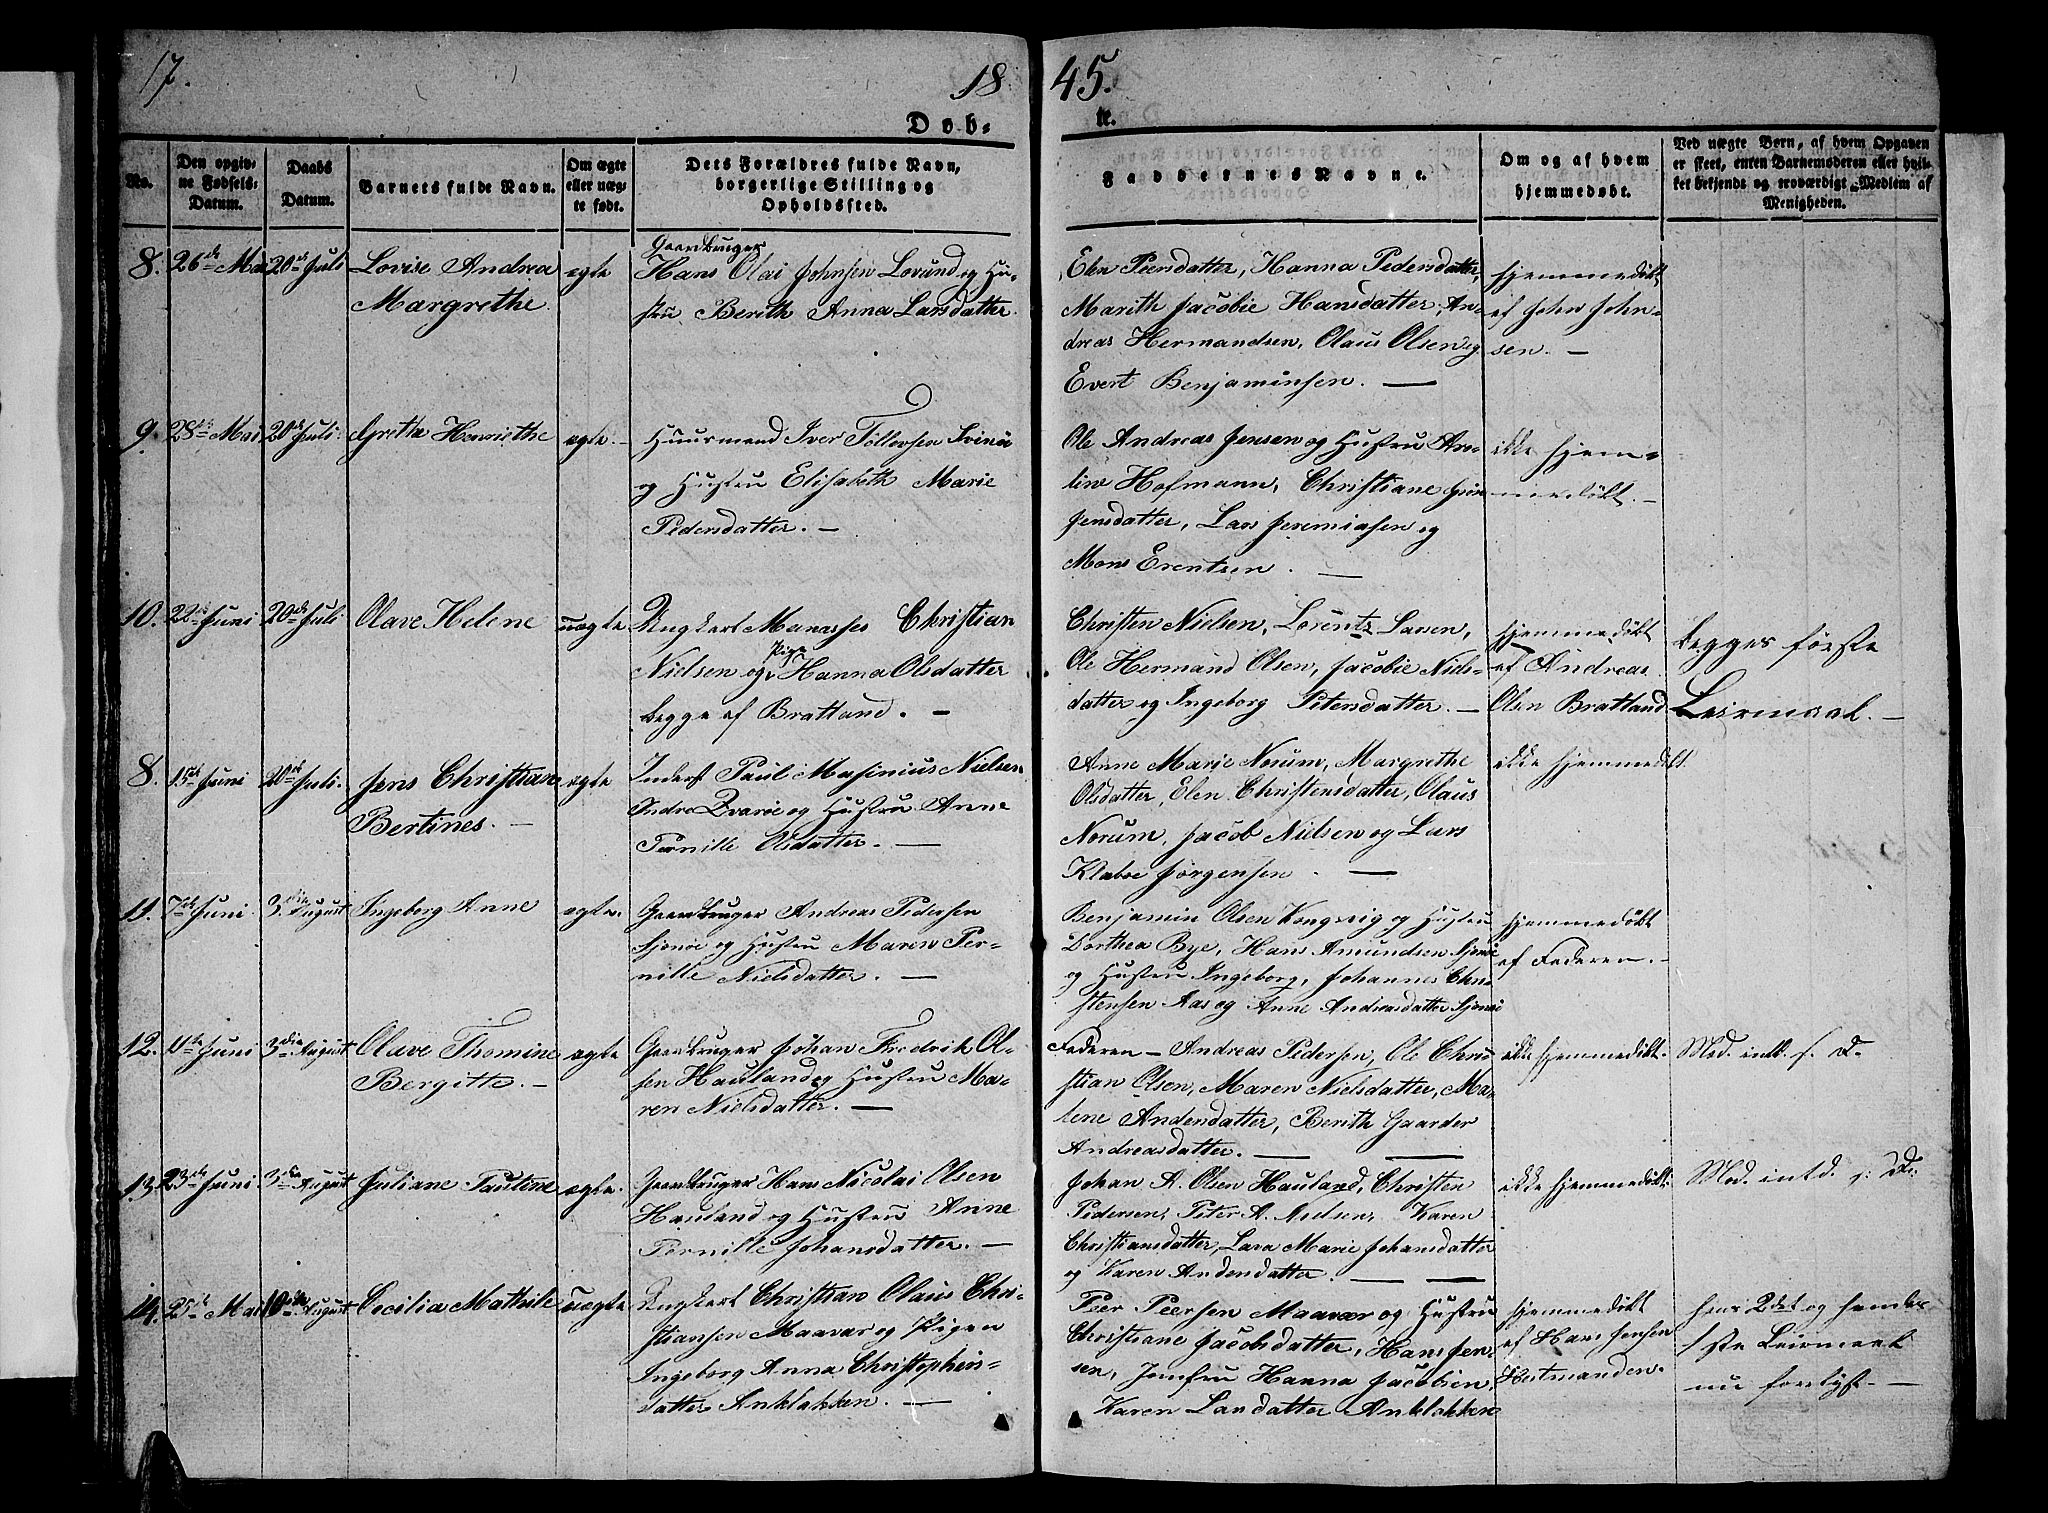 17. 18 45.
Dob- te.
No.
Den opgiv-
ne Fødsels-
Datum.
Daabs
Datum.
Barnets fulde Navn.
Om ægte
eller uæg-
te født.
Dets Forældres fulde Navn,
borgerlige Stilling og
Opholdssted.
Faddernes Navne.
Om og af hvem
hjemmedøbt.
Ved uægte Børn, af hvem Opgaven
er skeet, enten Barnemoderen eller hvil-
ket bekjendt og troværdigt Medlem af
Menigheden.
8. 26de Mai 20de Juli Lovise Andrea
Margrethe.
ægte
Gaardbruger
Hans Olai Johnsen Lovund og Hu-
stru Berith Anna Larsdatter.
Elen Peersdatter, Hanna Pedersdatter,
Marith Jacobie Hansdatter, An-
dreas Hermandsen, Olaus Olsen og
Evert Benjaminsen. —
hjemmedøbt
af John John-
sen. —
9. 28de Mai 20de Juli. Gretha Henriethe
ægte.
Huusmand Iver Tollevsen
og Hustru Elisabeth Marie
Pedersdatter. —
Ole Andreas Jensen og Hustru Are-
line Hofmann, Christiane
Jensdatter, Lars Jeremiasen og
Mons Erentsen. —
ikke hjem-
medøbt. —
10. 22de Juni 20de Juli Olave Helene
uægte
Ungkarl Manasses Christian
Nielsen og Pige Hanna Olsdatter
begge af Bratland. —
Christen Nielsen, Lorentz Larsen,
Ole Hermand Olsen, Jacobie Niels-
datter og Ingeborg Petersdatter. —
hjemmedøbt
af Andreas
Olsen Bratland
begges første
Leiermaal. —
8. 15de Juni 20de Juli. Jens Christian
Bertines. —
ægte
Inderst Paul Masinius Nielsen
Indre Qvarøe og Hustru Anne
Pernille Olsdatter. —
Anne Marie Norum, Margrethe
Olsdatter, Elen Christensdatter, Olaus
Norum, Jacob Nielsen og Lars
Klaboe Jørgensen. —
ikke hjemmedøbt.
11. 7de Juni 3die August Ingeborg Anne
ægte.
Gaardbruger Andreas Pedersen
Sjonøe og Hustru Maren Per-
nille Nielsdatter. —
Benjamin Olsen Kongsvig og Hustru
Dorthea Bye, Hans Amundsen Sjonøe
og Hustru Ingeborg, Johannes Chri-
stensen Aas og Anne Andreasdatter Sjonøe
hjemmedøbt
af Faderen. —
12. 11te Juni 3die August Olave Thomine
Bergitte. —
ægte
Gaardbruger Johan Fredrik Ol-
sen Hauland og Hustru Ma-
ren Nielsdatter. —
Faderen — Andreas Pedersen, Ole Chri-
stian Olsen, Maren Nielsdatter, Ma-
lene Andersdatter, Berith Gaarder
Andreasdatter. —
ikke hjemmedøbt.
Mod. intd. f. D.
13. 23de Juni 3die August Juliane Pauline
ægte.
Gaardbruger Hans Nicolai Olsen
Hauland og Hustru Anne
Pernille Johansdatter. —
Johan A. Olsen Hauland, Christen
Pedersen, Peter A. Nielsen, Karen
Christiansdatter, Lava Marie Johansdatter
og Karen Andersdatter. —
ikke hjemmedøbt.
Mod. intd. f. D.
14. 25de Mai 10de August Cecilia Mathilde
uægte
Ungkarl Christian Olaus Chri-
stiansen Maavær og Pigen
Ingeborg Anna Christophers-
datter Anklakken. —
Peer Peersen Maavær og Hustru
Christiane Jacobsdatter, Hans Jen-
sen, Jomfru Hanna Jacobsen,
Karen Larsdatter Anklakken
hjemmedøbt
af Hans Jensen
Hestmanden.
hans 2det og hendes
1ste Leiermaal
nu forelyst. —